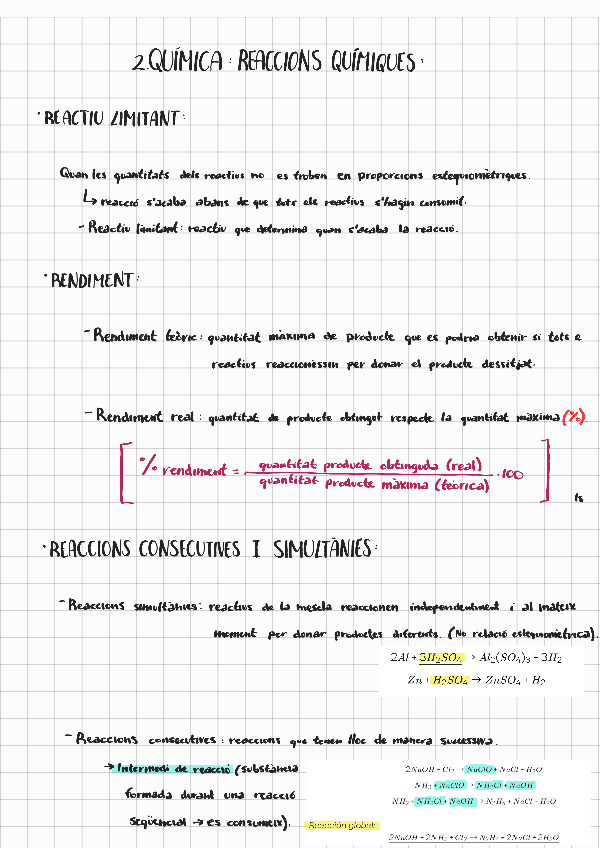 2.QUÍMICA: REACCIONS QUÍMIQUES.
·REACTIU LIMITANT:
Quan les quantitats dels reactius no es troben en proporcions estequiomètriques.
↳ reacció s'acaba abans de que tots els reactius s'hagin consumit.
- Reactiu limitant: reactiu que determina quan s'acaba la reacció.
·RENDIMENT:
- Rendiment teòric: quantitat màxima de producte que es podria obtenir si tots e
reactius reaccionéssin per donar el producte dessitjat.
- Rendiment real: quantitat de producte obtingut respecte la quantitat màxima (%)
% rendiment = quantitat producte obtinguda (real) / quantitat producte màxima (teòrica) · 100
ls
·REACCIONS CONSECUTIVES I SIMULTÀNIES:
- Reaccions simultànies: reactius de la mescla reaccionen independentment i al mateix
moment per donar productes diferents. (No relació estequiomètrica).
2Al + 3H₂SO₄ → Al₂(SO₄)₃ + 3H₂
Zn + H₂SO₄ → ZnSO₄ + H₂
- Reaccions consecutives: reaccions que tenen lloc de manera successiva.
→ Intermedi de reacció (substància
formada durant una reacció
seqüencial → es consumeix).
2NaOH + Cl₂ → NaClO + NaCl + H₂O
NH₃ + NaClO → NH₂Cl + NaOH
NH₃ + NH₂Cl + NaOH → N₂H₄ + NaCl + H₂O
Reacción global:
2NaOH + 2NH₃ + Cl₂ → N₂H₄ + 2NaCl + 2H₂O